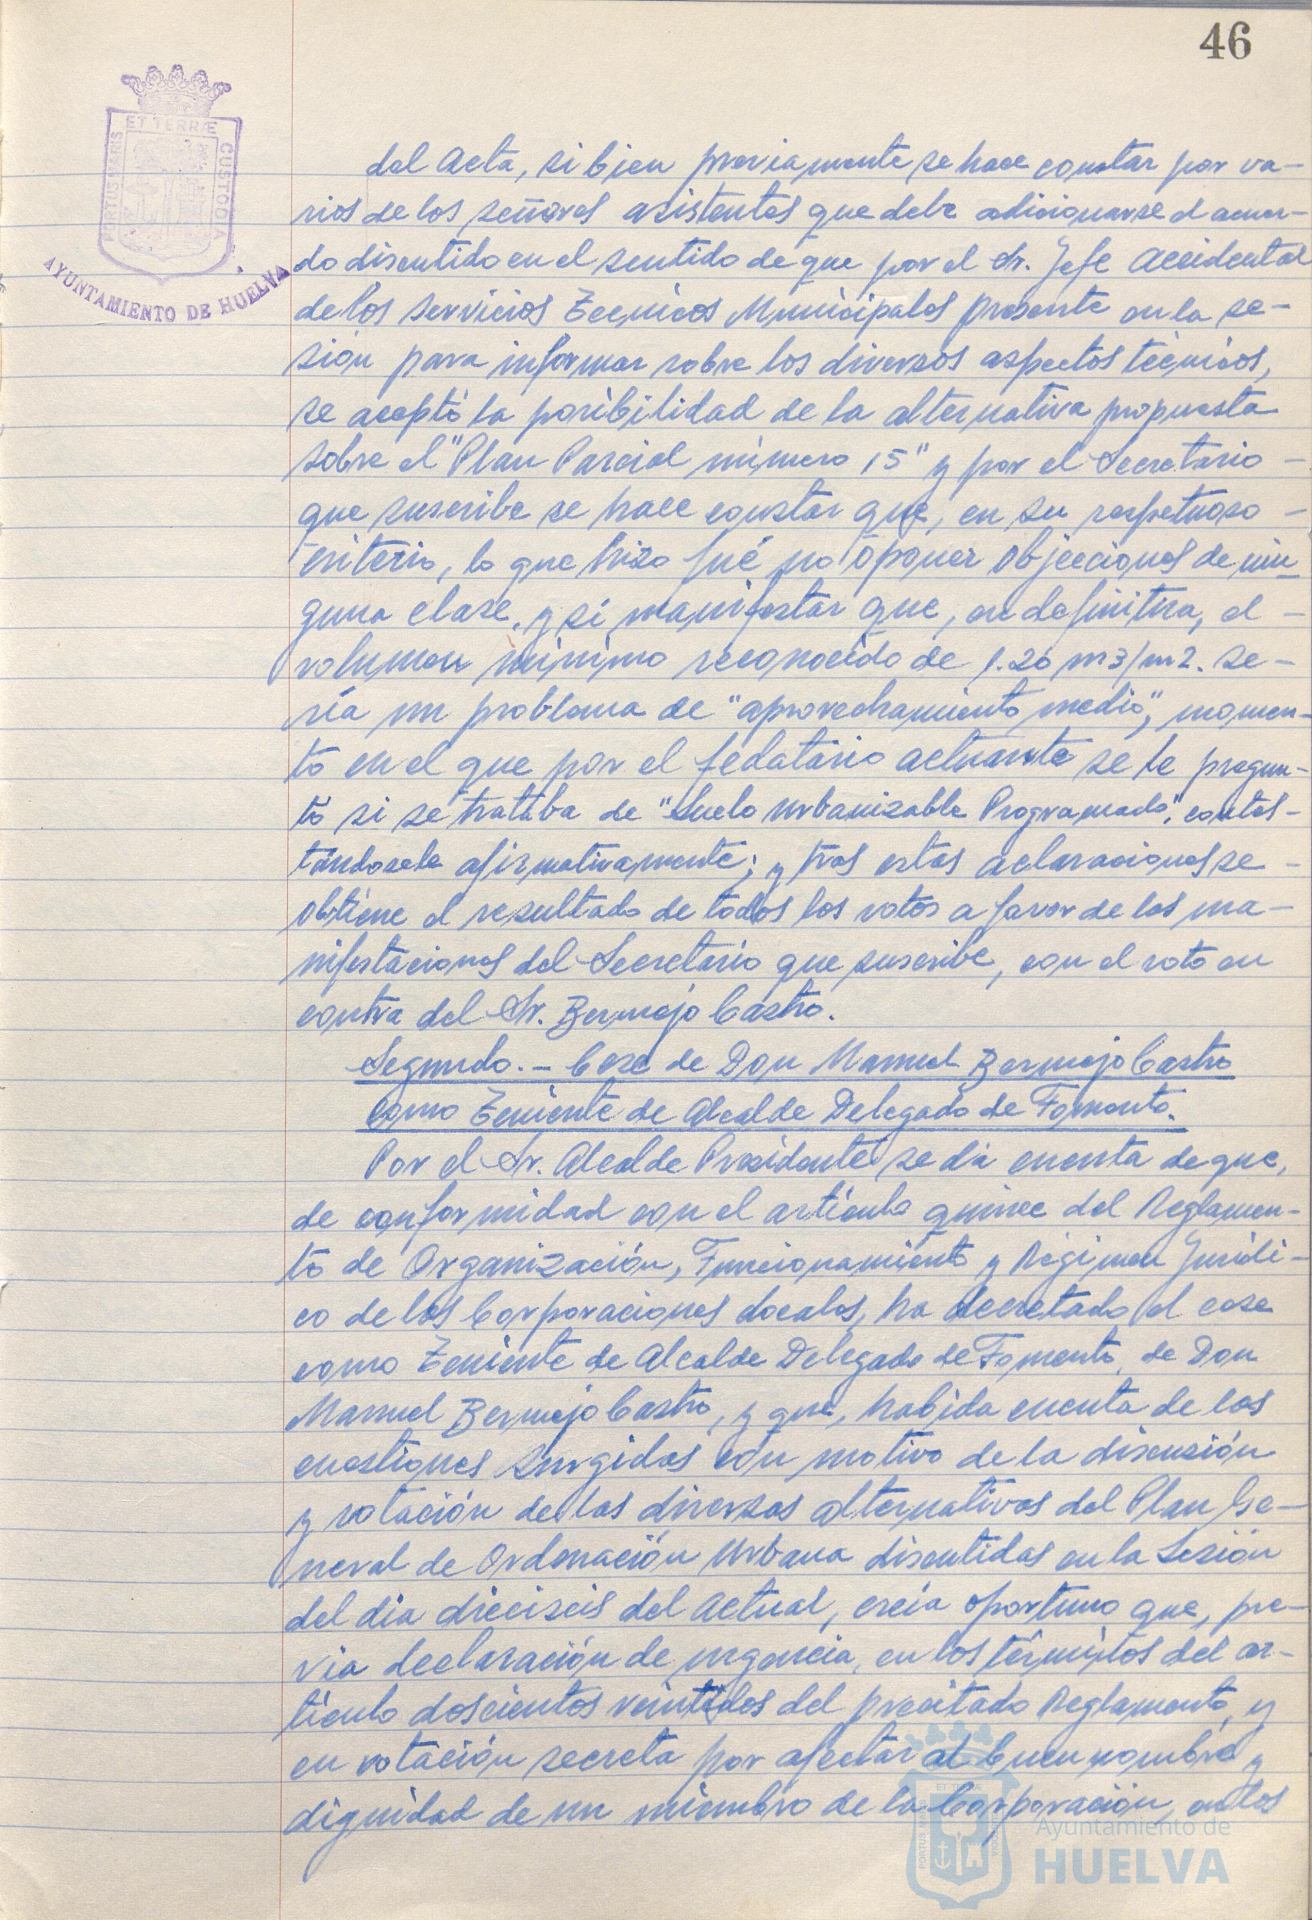 46
ET TERRÆ
PORTUS MARIS
CUSTODIA
AYUNTAMIENTO DE HUELVA
del Acta, si bien previamente se hace constar por va-
rios de los señores asistentes que debe adicionarse el acuer-
do discutido en el sentido de que por el Sr. Jefe Accidental
de los Servicios Técnicos Municipales presente en la se-
sión para informar sobre los diversos aspectos técnicos,
se aceptó la posibilidad de la alternativa propuesta
sobre el "Plan Parcial número 15" y por el Secretario -
que suscribe se hace constar que, en su respetuoso -
criterio, lo que hizo fué no oponer objecciones de nin-
guna clase, y si manifestar que, en definitiva, el -
volumen mínimo reconocido de 1.20 m3/m2. se-
ría un problema de "aprovechamiento medio", momen-
to en el que por el fedatario actuante se le pregun-
tó si se trataba de "Suelo Urbanizable Programado", contes-
tándosele afirmativamente; y tras estas aclaraciones se -
obtiene el resultado de todos los votos a favor de las ma-
nifestaciones del Secretario que suscribe, con el voto en
contra del Sr. Bermejo Castro.
Segundo. - Cese de Don Manuel Bermejo Castro
como Teniente de Alcalde Delegado de Fomento.
Por el Sr. Alcalde Presidente se da cuenta de que,
de conformidad con el artículo quince del Reglamen-
to de Organización, Funcionamiento y Régimen Jurídi-
co de las Corporaciones Locales, ha decretado el cese
como Teniente de Alcalde Delegado de Fomento, de Don
Manuel Bermejo Castro, y que, habida cuenta de las
cuestiones surgidas con motivo de la discusión
y votación de las diversas alternativas del Plan Ge-
neral de Ordenación Urbana discutidas en la Sesión
del día dieciseis del actual, creía oportuno que, pre-
via declaración de urgencia, en los términos del ar-
tículo doscientos veintidos del precitado Reglamento, y
en votación secreta por afectar al buen nombre y
dignidad de un miembro de la Corporación, antes
Ayuntamiento de
HUELVA